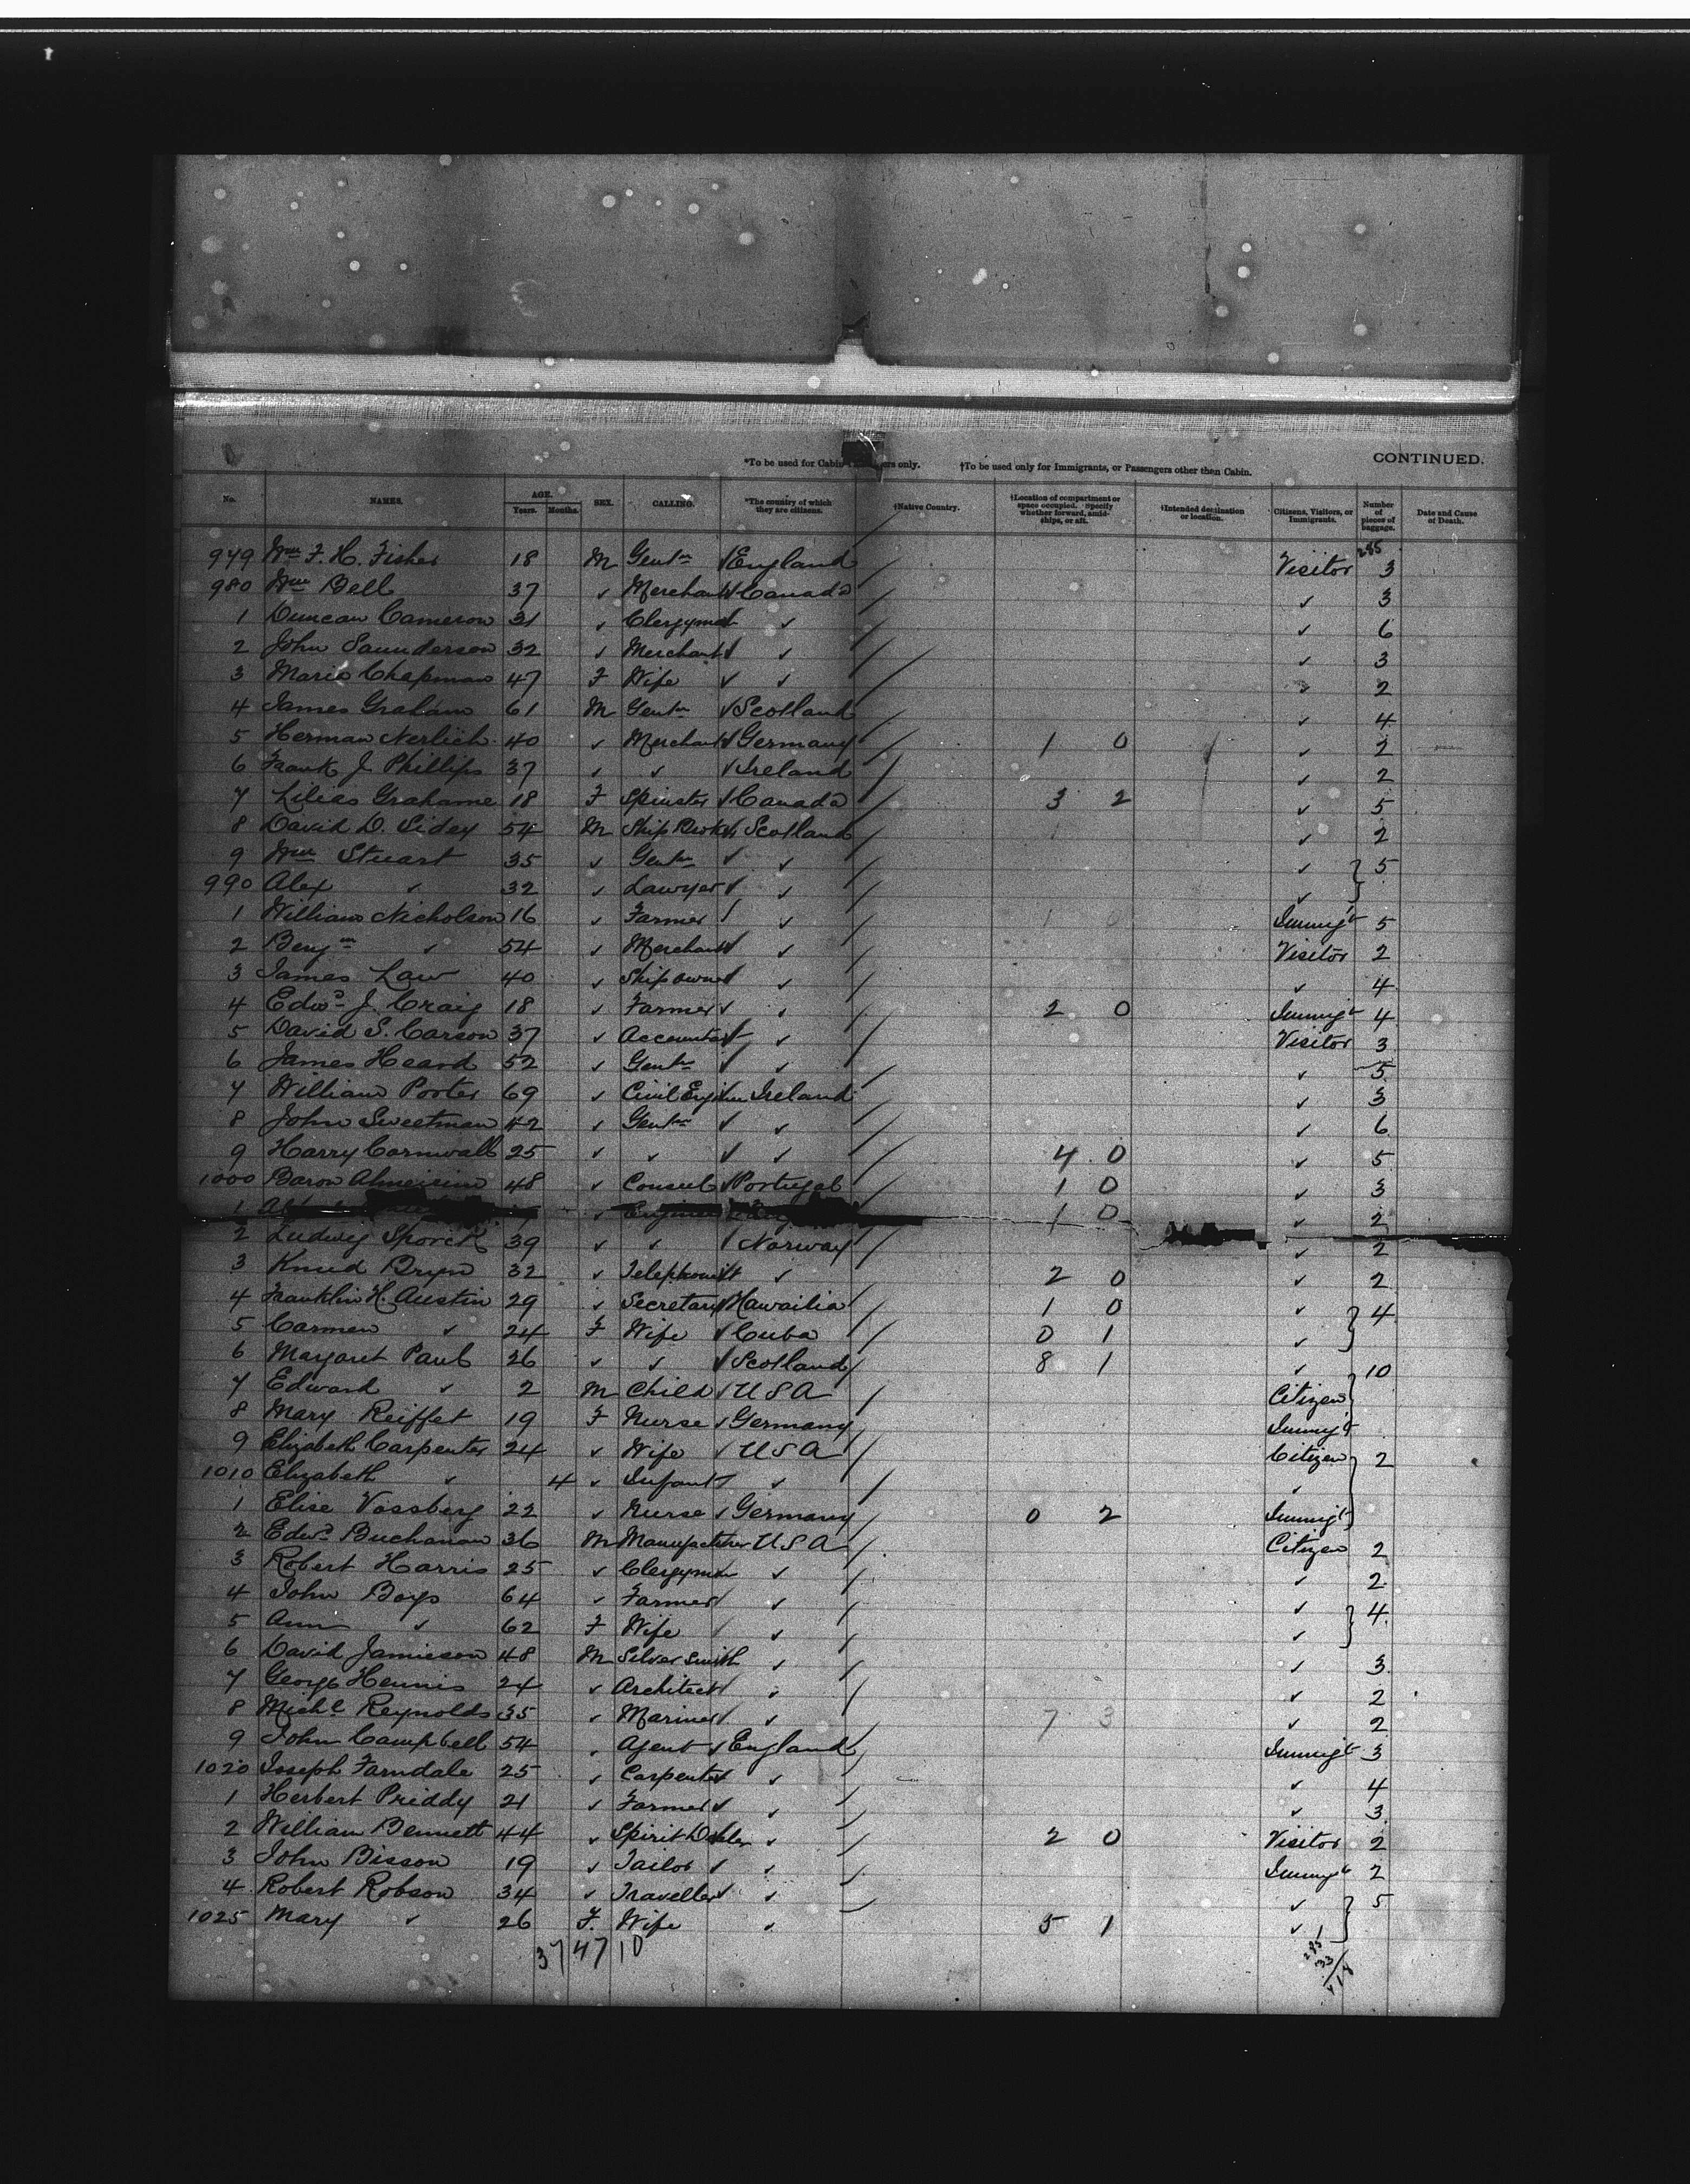 *To be used for Cabin only. †To be used only for Immigrants, or Passengers other than Cabin. CONTINUED.
No. NAMES. AGE. Years. Months. SEX. CALLING. *The country of which they are citizens. †Native Country. †Location of compartment or space occupied. Specify whether forward, amidships, or aft. †Intended destination or location. Citizens, Visitors, or Immigrants. Number of pieces of baggage. Date and Cause of Death.
285
979 Wm F. H. Fisher 18 M Gentn ✓ England Visitor 3
980 Wm Bell 37 ✓ Merchant ✓ Canada ✓ 3
1 Duncan Cameron 31 ✓ Clergyman ✓ ✓ 6
2 John Saunderson 32 ✓ Merchant ✓ ✓ ✓ 3
3 Maria Chapman 47 F Wife ✓ ✓ ✓ 2
4 James Graham 61 M Gentn ✓ Scotland ✓ 4
5 Herman Nerlich 40 ✓ Merchant ✓ Germany 1 0 ✓ 2
6 Frank J Phillips 37 ✓ ✓ ✓ Ireland ✓ 2
7 Lilias Grahame 18 F Spinster ✓ Canada 3 2 ✓ 5
8 David D. Sidey 54 M Ship Broker Scotland ✓ 2
9 Wm Stuart 35 ✓ Gentn ✓ ✓ ✓ } 5
990 Alex ✓ 32 ✓ Lawyer ✓ ✓ ✓
1 William Nicholson 16 ✓ Farmer ✓ Immigt 5
2 Benjn ✓ 54 ✓ Merchant ✓ Visitor 2
3 James Law 40 ✓ Ship owner ✓ ✓ 4
4 Edwd J. Craig 18 ✓ Farmer ✓ ✓ 2 0 Immigt 4
5 David S. Carson 37 ✓ Accountant ✓ Visitor 3
6 James Heard 52 ✓ Gentn ✓ ✓ ✓ 5
7 William Porter 69 ✓ Civil Engineer Ireland ✓ 3
8 John Sweetman 42 ✓ Gentn ✓ ✓ ✓ 6
9 Harry Cornwall 25 ✓ ✓ ✓ ✓ 4 0 ✓ 5
1000 Baron Almeirim 48 ✓ Consul ✓ Portugal 1 0 ✓ 3
1 ✓ 1 0 ✓ 2
2 Ludwig Sporck 39 ✓ ✓ Norway ✓ 2
3 Knud Bryn 32 ✓ Telephonist ✓ 2 0 ✓ 2
4 Franklin H. Austin 29 ✓ Secretary Hawaiia 1 0 ✓ } 4
5 Carmen ✓ 24 F Wife ✓ Cuba 0 1 ✓
6 Margaret Paul 26 ✓ ✓ ✓ Scotland 8 1 ✓ } 10
7 Edward ✓ 2 M Child ✓ U S A Citizen
8 Mary Reiffet 19 F Nurse ✓ Germany Immigt
9 Elizabeth Carpenter 24 ✓ Wife ✓ U S A Citizen } 2
1010 Elizabeth ✓ 4 ✓ Infant ✓ ✓
1 Elise Vossberg 22 ✓ Nurse ✓ Germany 0 2 Immigt
2 Edwd Buchanan 36 M Manufacturer U S A Citizen 2
3 Robert Harris 25 ✓ Clergyman ✓ ✓ 2
4 John Boys 64 ✓ Farmer ✓ ✓ } 4
5 Ann ✓ 62 F Wife ✓ ✓
6 David Jamieson 48 M Silver Smith ✓ ✓ 3
7 George Hennis 24 ✓ Architect ✓ ✓ 2
8 Michl Reynolds 35 ✓ Mariner ✓ 7 3 ✓ 2
9 John Campbell 54 ✓ Agent ✓ England Immigt 3
1020 Joseph Farndale 25 ✓ Carpenter ✓ ✓ 4
1 Herbert Priddy 21 ✓ Farmer ✓ ✓ ✓ 3
2 William Bennett 44 ✓ Spirit Dealer ✓ 2 0 Visitor 2
3 John Bisson 19 ✓ Tailor ✓ ✓ Immigt 2
4 Robert Robson 34 ✓ Traveller ✓ ✓ } 5
1025 Mary ✓ 26 F. Wife ✓ 5 1 ✓
37 47 10
285
133
418